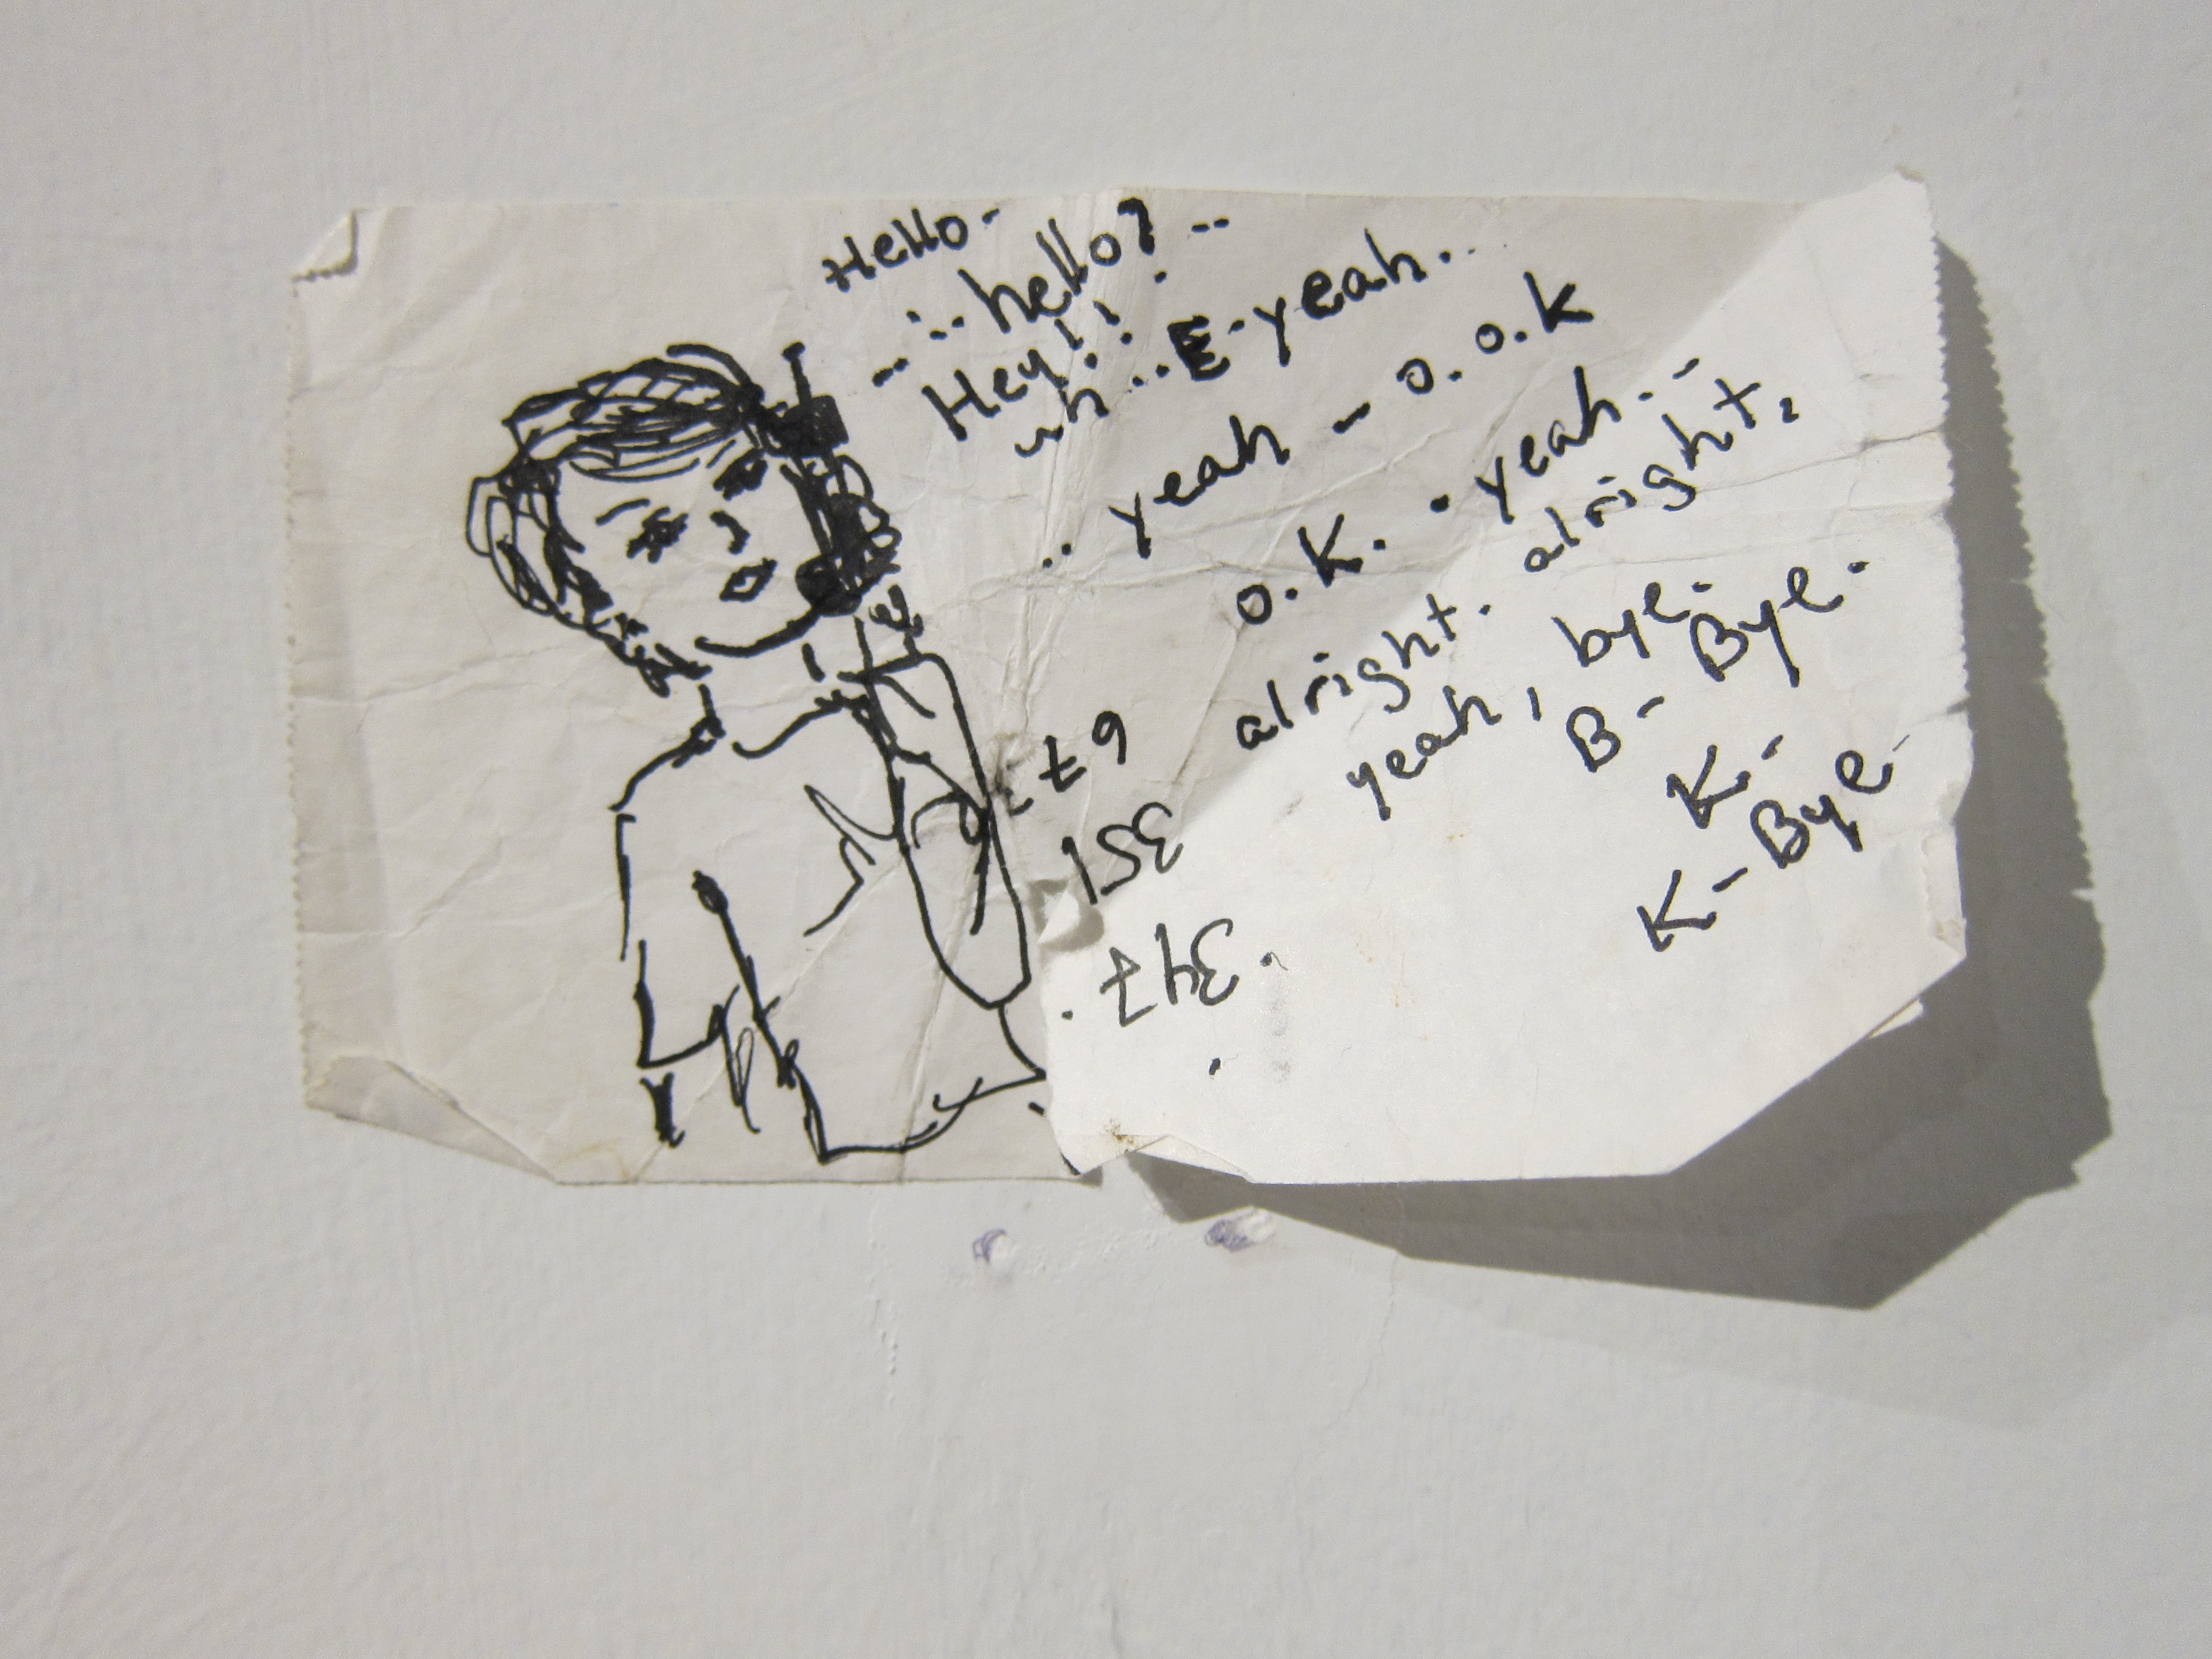 Hello-
...hello?..
-- Hey!!
uh..E-yeah...
.. yeah - o.o.k
o.k. . yeah.-
alright. alright,
yeah, bye.
B- Bye.
K-
K-Bye.
.347.
351